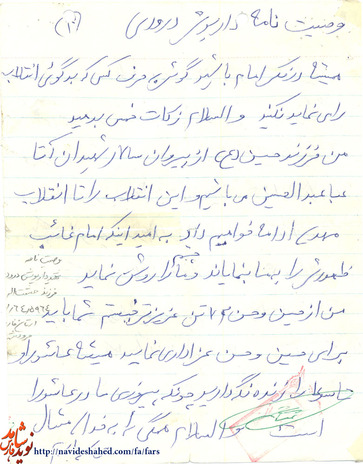 وصیت نامه داریوش درودی (۲)
همیشه در فکر امام باشید گوش به حرف کسی که بدگوئی انقلاب
را می نماید نکنید والسلام زکات خمس بدهید
من فرزند حسین (ع) از پیروان سالار شهیدان آقا
عبدالحسین می باشیم و این انقلاب را تا انقلاب
مهدی ادامه خواهیم داد به امید اینکه امام غائب
ظهورش را بهما بنمایاند و چشم ما را روشن نماید
من از حسین و حسن و تن عزیزتر نیستم شما باید
برای حسین و حسن عزاداری نمایید همیشه عاشورا و
را زنده نگه دارید چونکه پیروزی ما در عاشورا
است والسلام همگی را به خدا
وصیت نامه
فرزند
http://www.navideshahed.com/fa/fars
نوید شاهد فارس